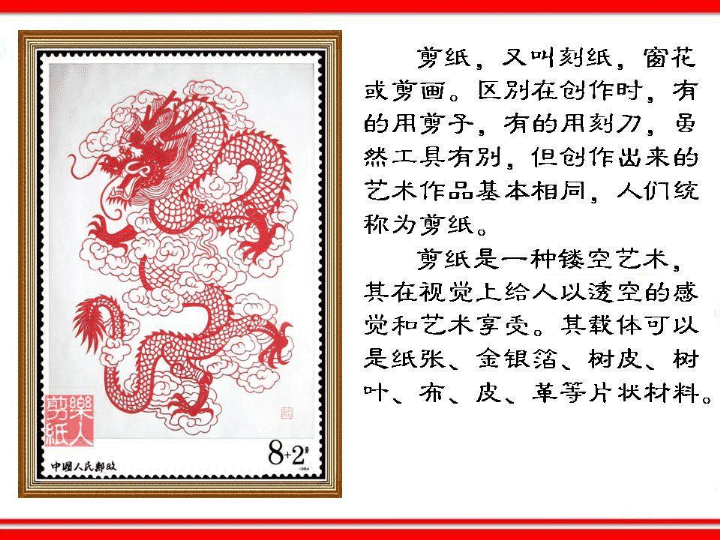 剪纸，又叫刻纸，窗花
或剪画。区别在创作时，有
的用剪子，有的用刻刀，虽
然工具有别，但创作出来的
艺术作品基本相同，人们统
称为剪纸。
剪纸是一种镂空艺术，
其在视觉上给人以透空的感
觉和艺术享受。其载体可以
是纸张、金银箔、树皮、树
叶、布、皮、革等片状材料。
樂人
剪紙
8+2分
中国人民邮政
1984